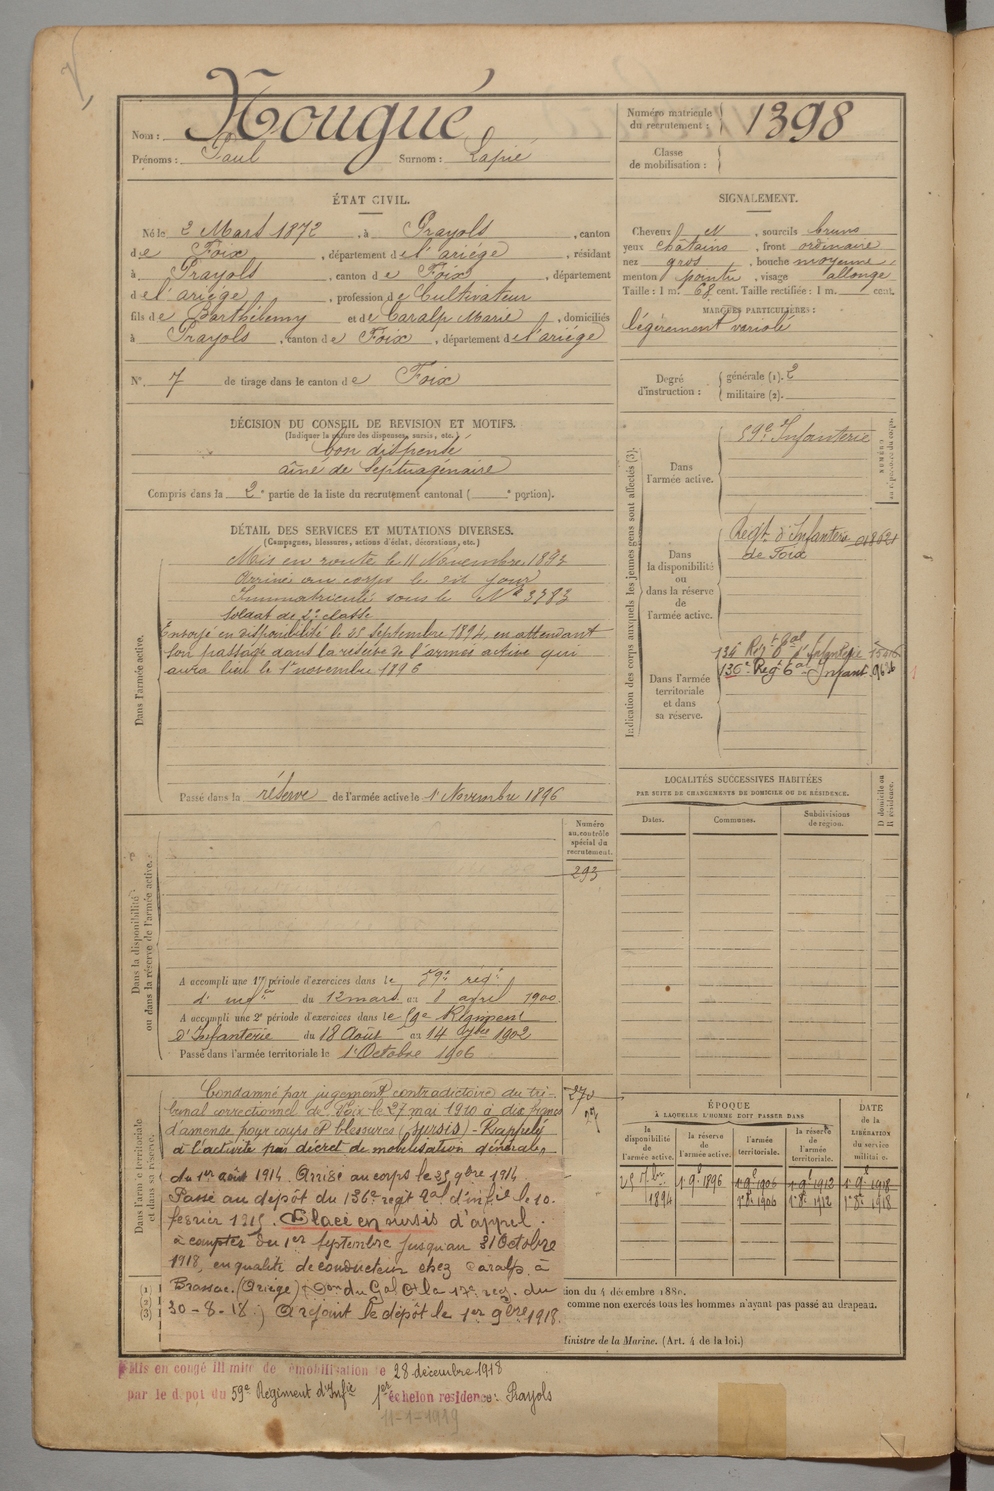 Nom : Nougué
Prénoms : Paul Surnom : Lapié
Numéro matricule du recrutement : 1398
Classe de mobilisation :
ÉTAT CIVIL.
Né le 2 Mars 1872, à Prayols, canton
de Foix, département de l'ariége, résidant
à Prayols, canton de Foix, département
de l'ariége, profession de Cultivateur
fils de Barthélemy et de Caralp Marie, domiciliés
à Prayols, canton de Foix, département de l'ariége
N°. 7 de tirage dans le canton de Foix
SIGNALEMENT.
Cheveux et, sourcils bruns
yeux châtains, front ordinaire
nez gros, bouche moyenne
menton pointu, visage allongé
Taille : 1 m. 68 cent. Taille rectifiée : 1 m. cent.
MARQUES PARTICULIÈRES :
légèrement variolé
Degré d'instruction : générale (1). 2
militaire (2).
DÉCISION DU CONSEIL DE REVISION ET MOTIFS.
(Indiquer la nature des dispenses, sursis, etc.)
bon dispensé
ainé de Septuagénaire
Compris dans la 2e partie de la liste du recrutement cantonal ( e portion).
DÉTAIL DES SERVICES ET MUTATIONS DIVERSES.
(Campagnes, blessures, actions d'éclat, décorations, etc.)
Dans l'armée active.
Mis en route le 11 Novembre 1893
Arrivé au corps le dit jour
Immatriculé sous le No 3783
Soldat de 2e classe
Envoyé en disponibilité le 25 septembre 1894, en attendant
son passage dans la réserve de l'armée active qui
aura lieu le 1er novembre 1896
Passé dans la réserve de l'armée active le 1er Novembre 1896
Indication des corps auxquels les jeunes gens sont affectés (3).
Dans l'armée active.
59e Infanterie
Dans la disponibilité ou dans la réserve de l'armée active.
Regt d'Infanterie
de Foix
Dans l'armée territoriale et dans sa réserve.
134e Régt tal d'Infanterie
136e Regt tal Infant.
LOCALITÉS SUCCESSIVES HABITÉES
PAR SUITE DE CHANGEMENTS DE DOMICILE OU DE RÉSIDENCE.
Dates. Communes. Subdivisions de région. D domicile ou R résidence.
Numéro au contrôle spécial du recrutement.
293
Dans la disponibilité ou dans la réserve de l'armée active.
A accompli une 1re période d'exercices dans le 59e régt
d'infie du 12 mars au 8 avril 1900.
A accompli une 2e période d'exercices dans le 59e Régiment
d'Infanterie du 18 Août au 14 7bre 1902
Passé dans l'armée territoriale le 1er Octobre 1906
Dans l'armée territoriale et dans sa réserve.
Condamné par jugement contradictoire du tri-
bunal correctionnel de Foix le 27 mai 1910 à dix francs
d'amende pour coups et blessures (sursis) - Rappelé
à l'activité par décret de mobilisation générale,
du 1er août 1914. Arrivé au corps le 35 9bre 1914
Passé au dépôt du 136e regt tal d'infie le 10
février 1915. Placé en sursis d'appel
à compter du 1er Septembre jusqu'au 31 Octobre
1918, en qualité de conducteur chez Caralp à
Brassac (Ariège) (Don du Gal Ct la 17e reg. du
30-8-18.) A rejoint le dépôt le 1er 9bre 1918.
ÉPOQUE
À LAQUELLE L'HOMME DOIT PASSER DANS
la disponibilité de l'armée active. la réserve de l'armée active. l'armée territoriale. la réserve de l'armée territoriale.
DATE de la LIBÉRATION du service militaire.
25 7bre 1894 1er 9e 1896 1er 9e 1906 1er 9e 1912 1er 9e 1918
1er 8e 1906 1er 8e 1912 1er 8e 1918
tion du 4 décembre 1889.
comme non exercés tous les hommes n'ayant pas passé au drapeau.
Ministre de la Marine. (Art. 4 de la loi.)
Mis en congé illimité de démobilisation le 28 décembre 1918
par le dépot du 59e Régiment d'Infie 1er échelon residence: Prayols
11-1-1919